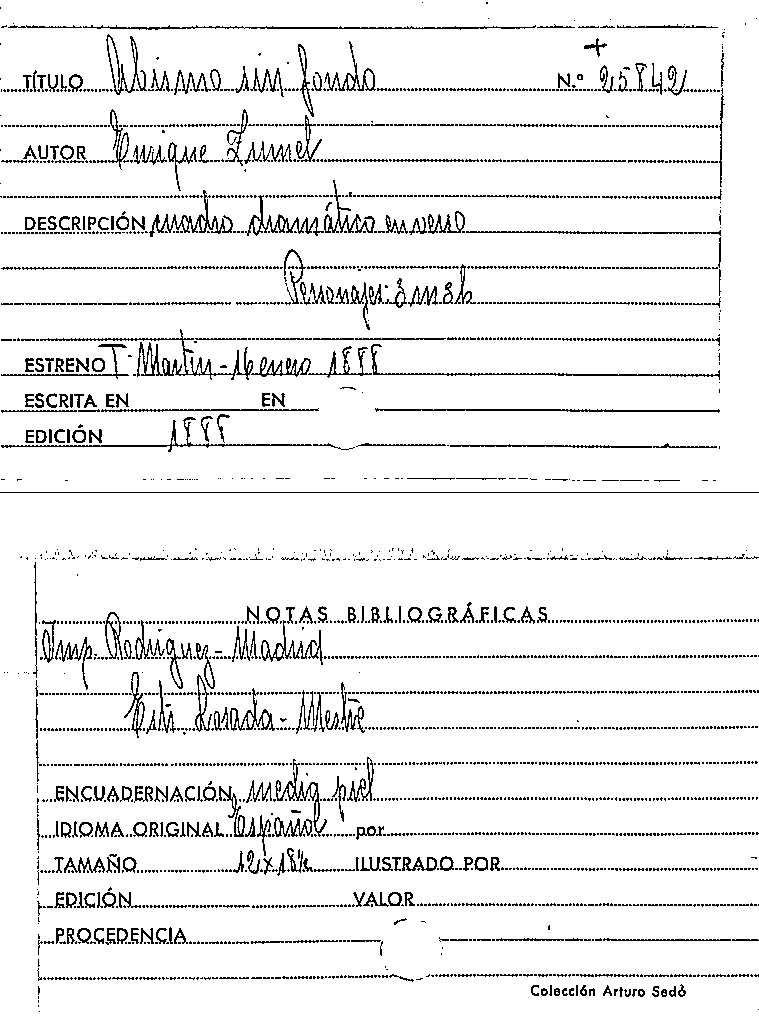 +
TÍTULO Abismo sin fondo N.º 25842
AUTOR Enrique Zumel
DESCRIPCIÓN cuadro dramático en verso
Personajes: 3 m 3 h
ESTRENO T. Martín - 16 enero 1888
ESCRITA EN EN
EDICIÓN 1888
NOTAS BIBLIOGRÁFICAS
Imp. Rodriguez - Madrid
Estr. Losada - Mestre
ENCUADERNACIÓN media piel
IDIOMA ORIGINAL Español por
TAMAÑO 12 x 18½ ILUSTRADO POR
EDICIÓN VALOR
PROCEDENCIA
Colección Arturo Sedó